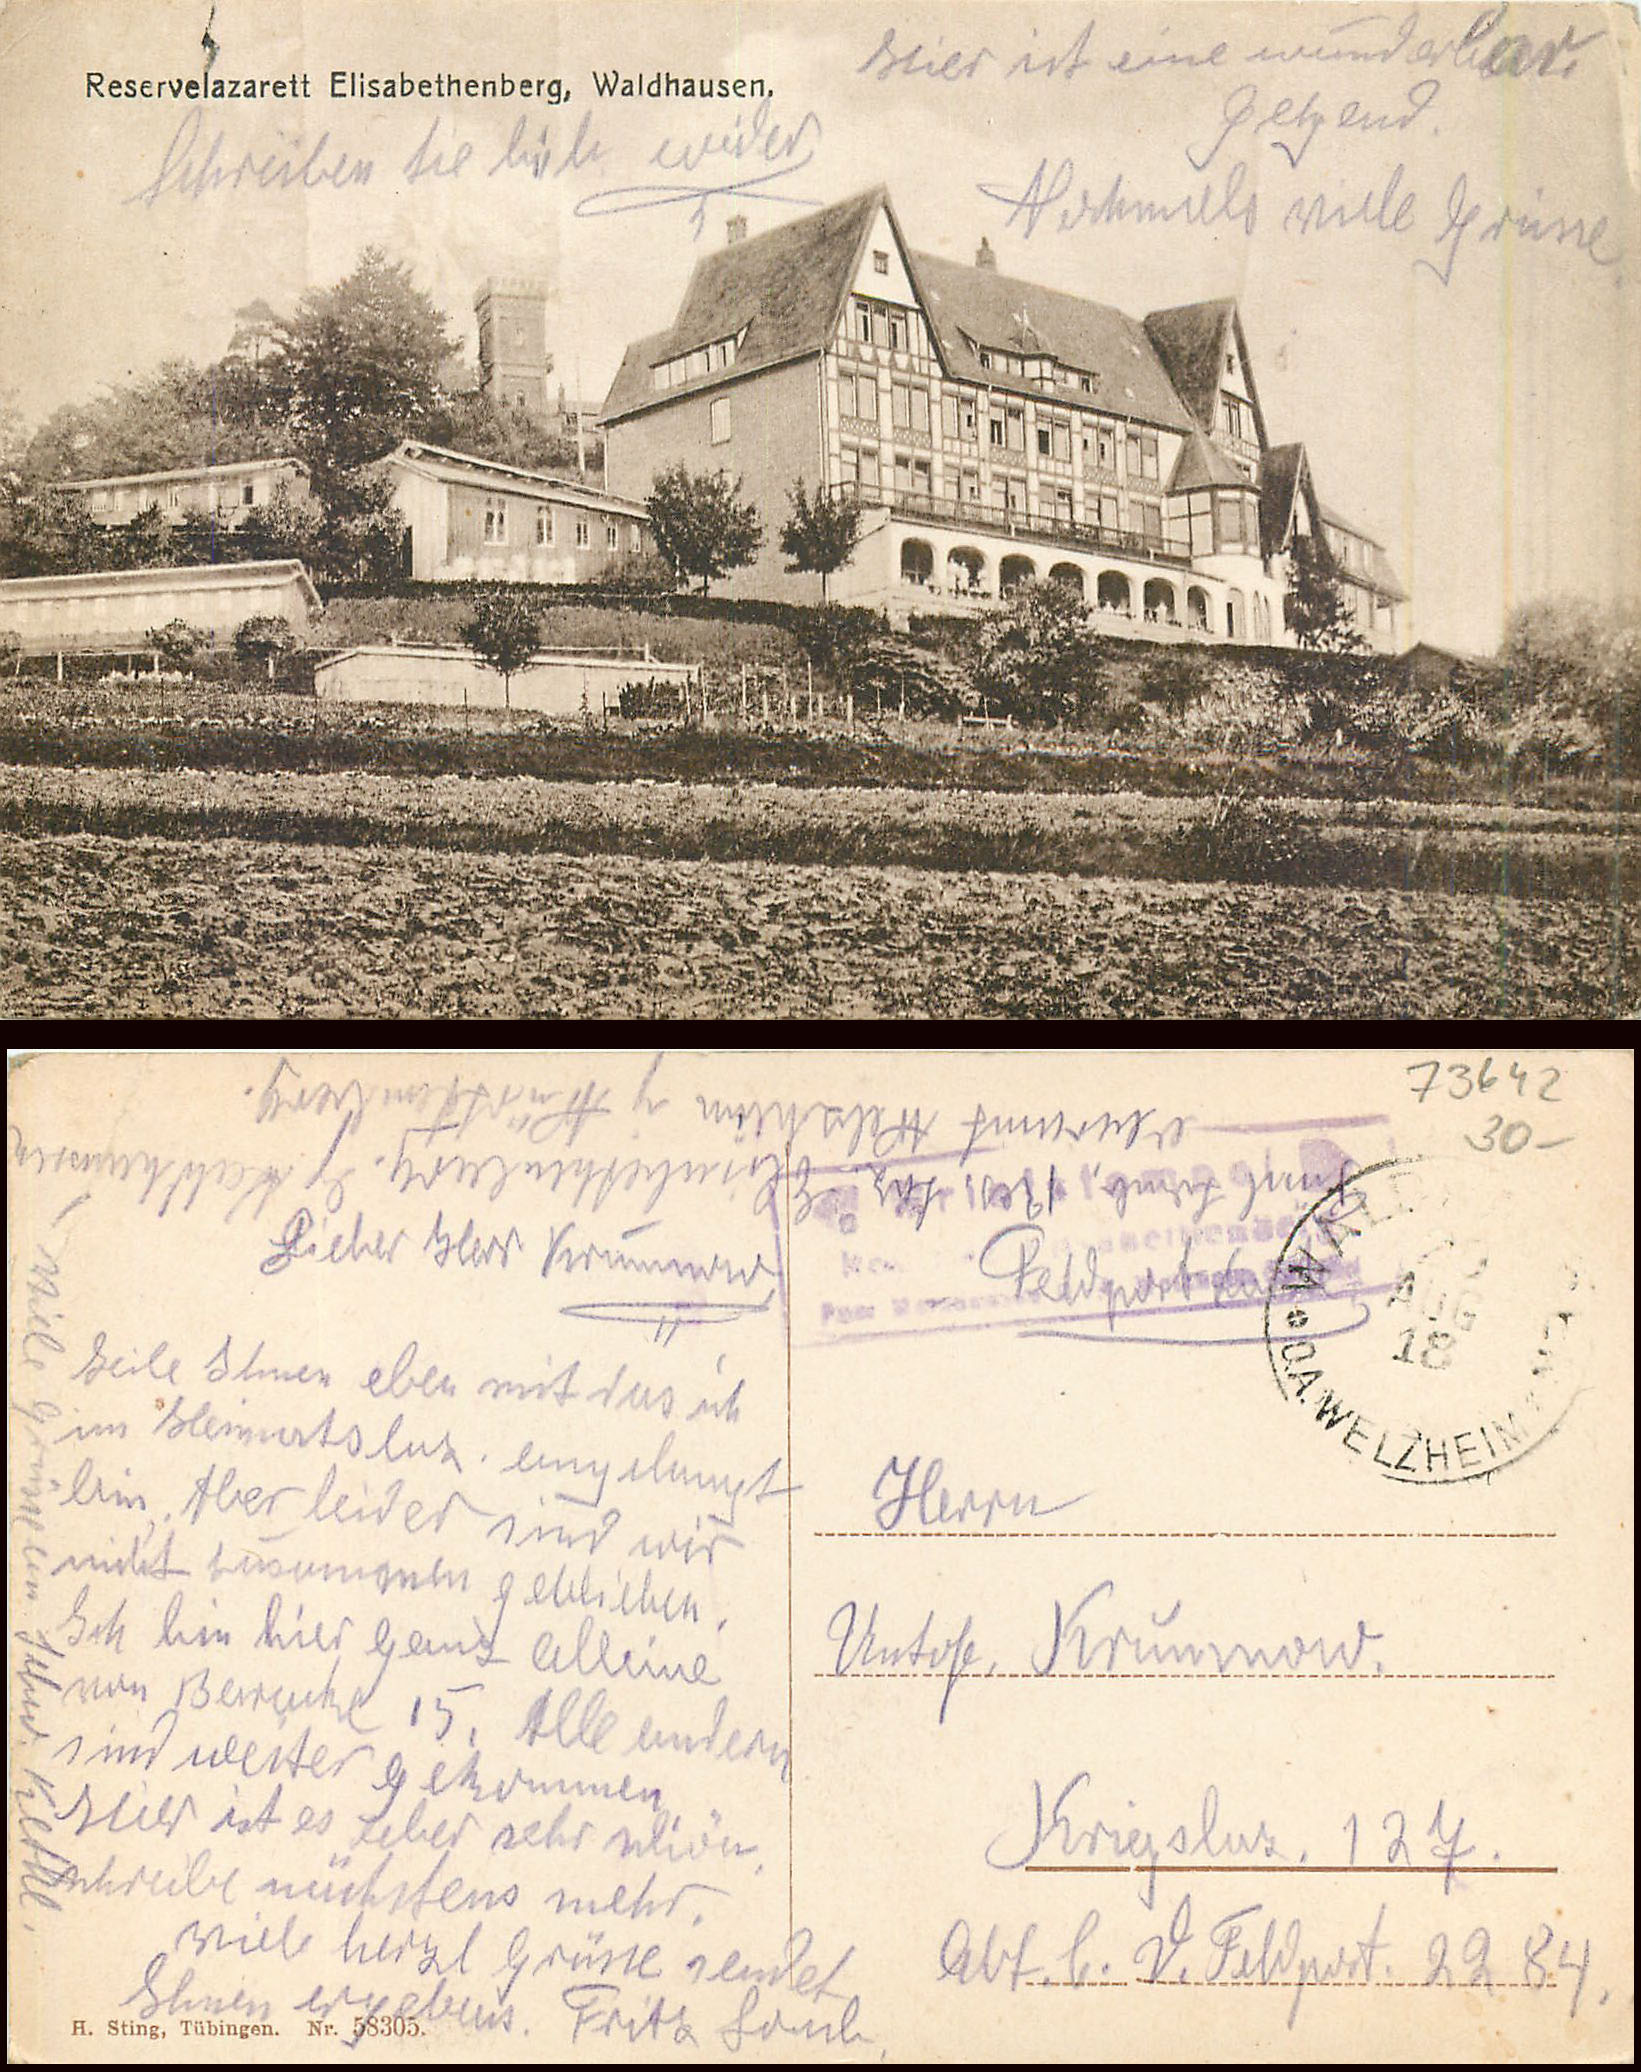 Reservelazarett Elisabethenberg, Waldhausen.
Hier ist eine wunderbar.
Gegend.
Schreiben Sie bitte wider
Nochmals viele Grüsse.
73642
30-
Lieber Herr Krummow
Feldpost
WALD
AUG
18
O.A. WELZHEIM
Teile Ihnen eben mit das ich
im Heimatslaz. angelangt
bin. Aber leider sind wir
nicht zusammen geblieben.
Ich bin hier ganz alleine
von Baracke 15. Alle andern
sind weiter gekommen
Hier ist es aber sehr schön.
schreibe nächstens mehr.
Viele herzl Grüsse sendet
Ihnen ergebens. Fritz
Viele Grüsse
Herrn
Untofz. Krummow.
Kriegslaz. 127.
Abt. b. D. Feldpost. 2284.
H. Sting, Tübingen. Nr. 58305.